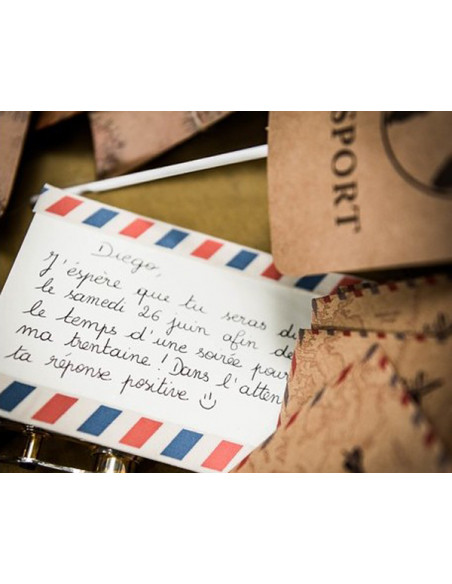 SPORT
Diego,
J'espère que tu seras
le samedi 26 juin afin de
le temps d'une soirée pour
ma trentaine ! Dans l'atten
ta réponse positive :)